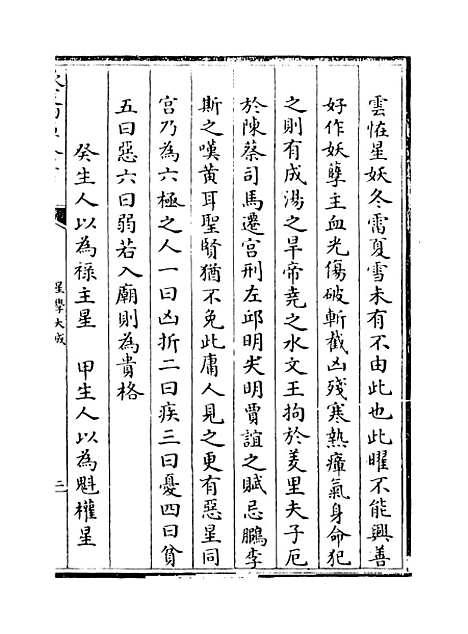 雲怪星妖冬雷夏雪未有不由此也此曜不能興善
好作妖孽主血光傷破斬截凶殘寒熱瘴氣身命犯
之則有成湯之旱帝堯之水文王拘於羑里夫子厄
於陳蔡司馬遷宮刑左邱明失明賈誼之賦忌鵩李
斯之嘆黃耳聖賢猶不免此庸人見之更有惡星同
宮乃為六極之人一曰凶折二曰疾三曰憂四曰貧
五曰惡六曰弱若入廟則為貴格
癸生人以為祿主星　甲生人以為魁權星
星學大成
二